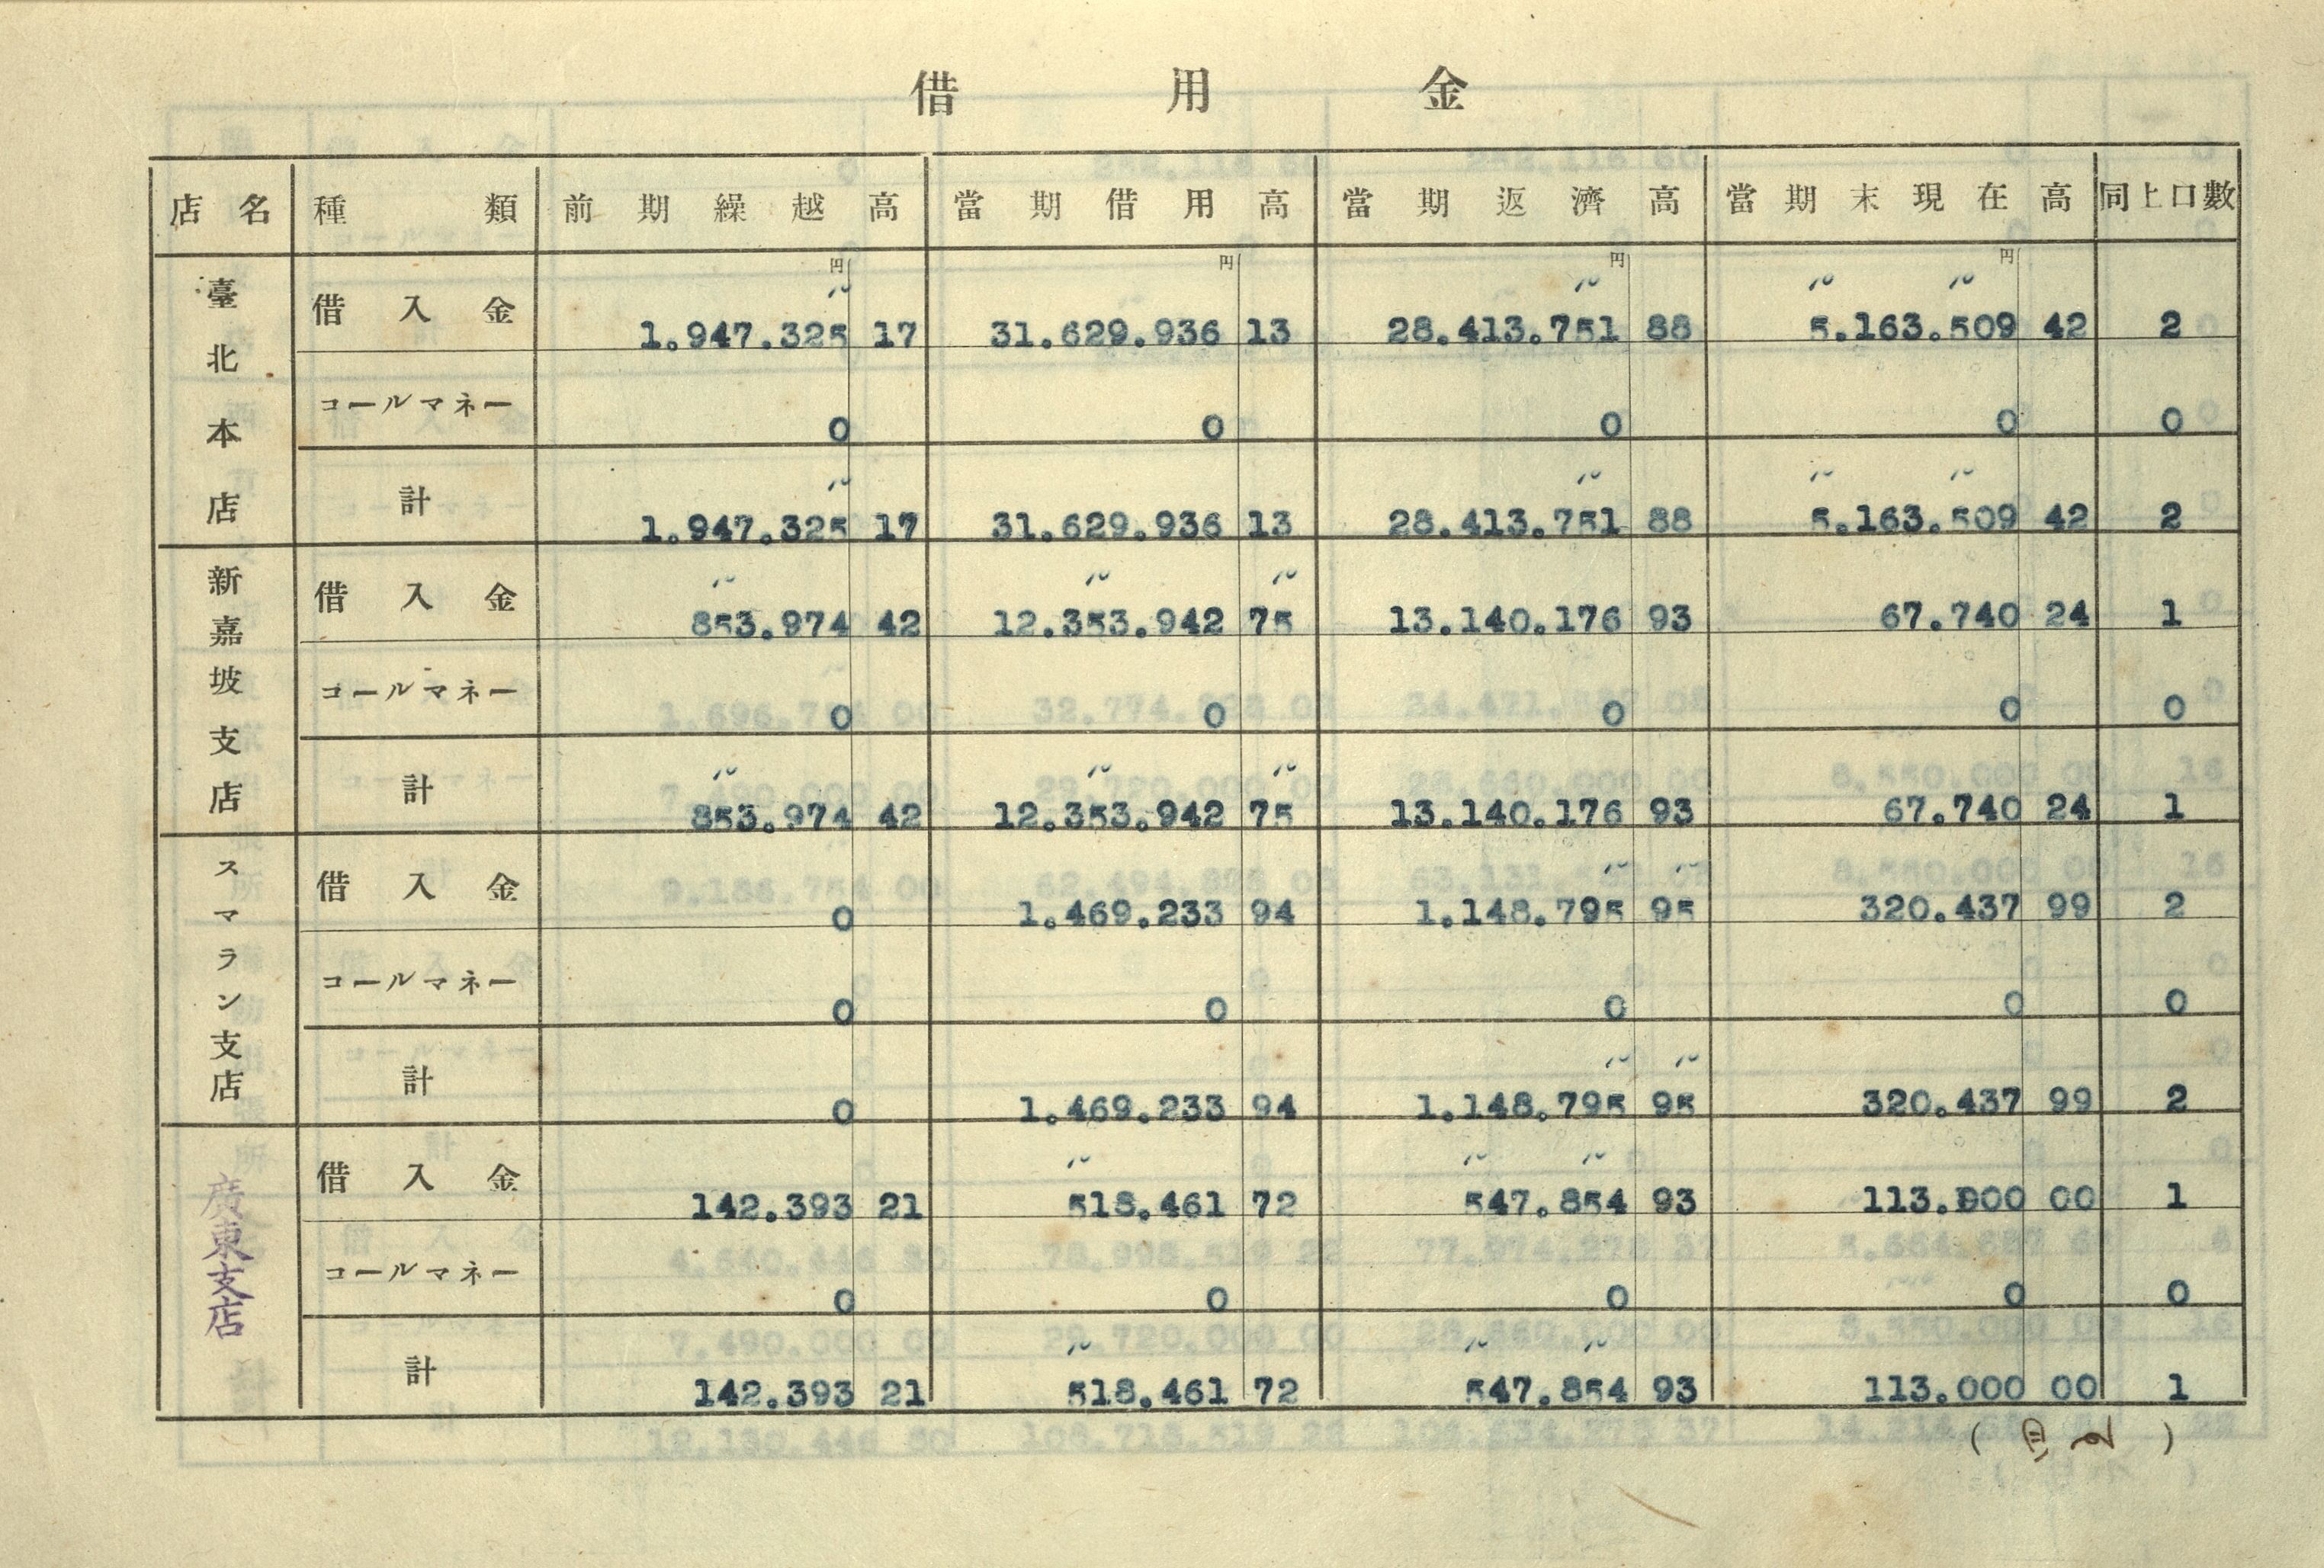 借用金
店名 種類 前期繰越高 當期借用高 當期返濟高 當期末現在高 同上口數
円 円 円 円
臺北本店 借入金 1.947.325 17 31.629.936 13 28.413.751 88 5.163.509 42 2
コールマネー 0 0 0 0 0
計 1.947.325 17 31.629.936 13 28.413.751 88 5.163.509 42 2
新嘉坡支店 借入金 853.974 42 12.353.942 75 13.140.176 93 67.740 24 1
コールマネー 0 0 0 0 0
計 853.974 42 12.353.942 75 13.140.176 93 67.740 24 1
スマラン支店 借入金 0 1.469.233 94 1.148.795 95 320.437 99 2
コールマネー 0 0 0 0 0
計 0 1.469.233 94 1.148.795 95 320.437 99 2
廣東支店 借入金 142.393 21 518.461 72 547.854 93 113.000 00 1
コールマネー 0 0 0 0 0
計 142.393 21 518.461 72 547.854 93 113.000 00 1